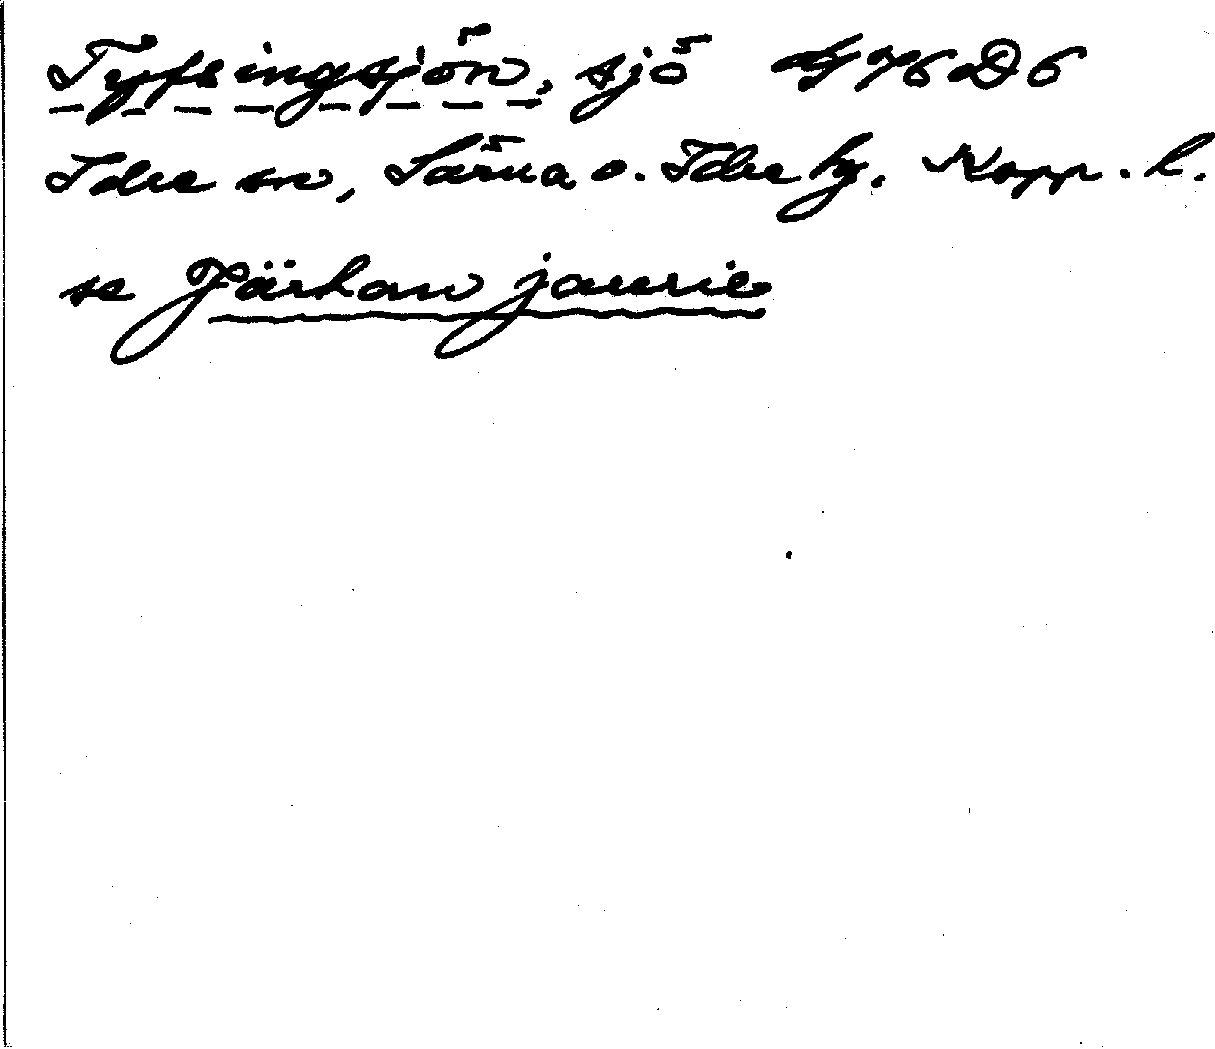 Tyfsingsjön, sjö G76D6
Idre sn, Särna o. Idre tg. Kopp. l.
se Järhan jaurie